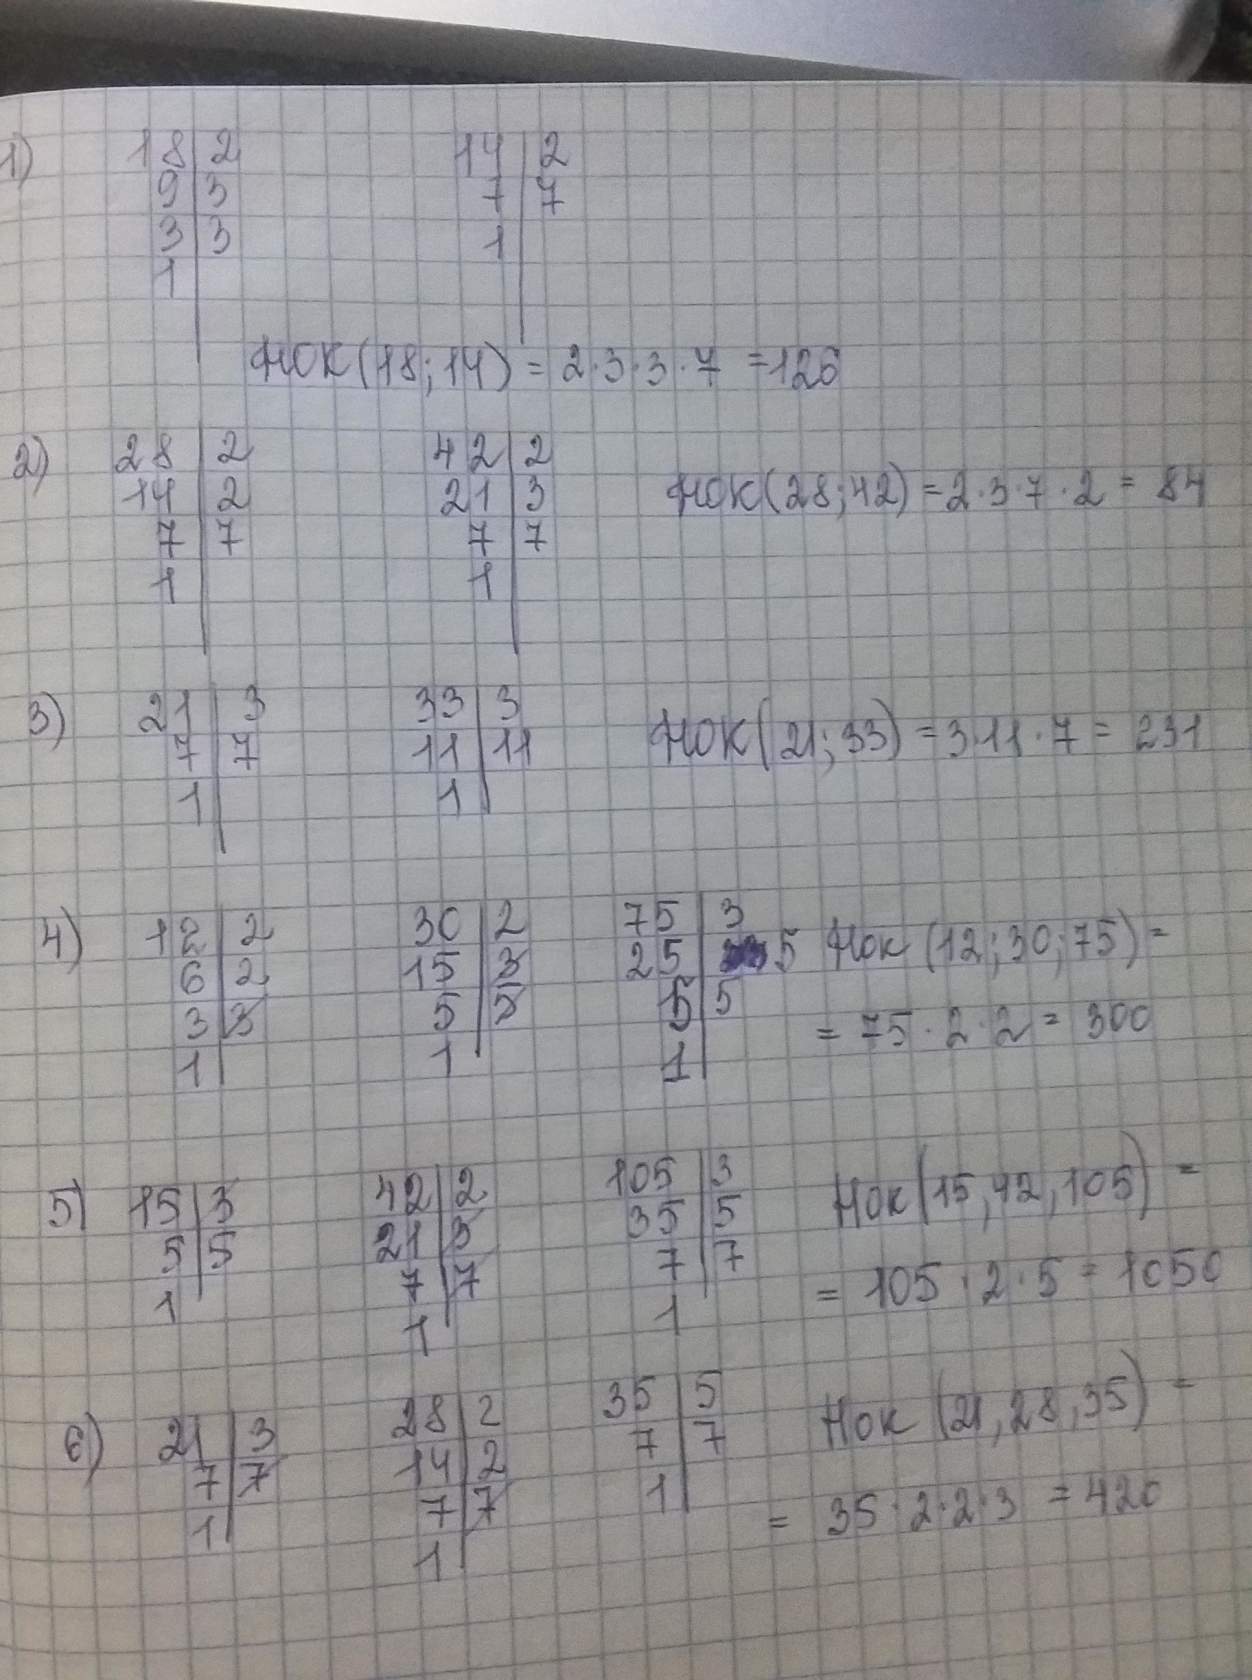 1) 18 | 2 14 | 2
9 | 3 7 | 7
3 | 3 1
1
НОК(18;14) = 2·3·3·7 = 126
2) 28 | 2 42 | 2
14 | 2 21 | 3 НОК(28;42) = 2·3·7·2 = 84
7 | 7 7 | 7
1 1
3) 21 | 3 33 | 3 НОК(21;33) = 3·11·7 = 231
7 | 7 11 | 11
1 1
4) 12 | 2 30 | 2 75 | 3 НОК (12;30;75) =
6 | 2 15 | 3 25 | 5
3 | 3 5 | 5 5 | 5 = 75·2·2 = 300
1 1 1
5) 15 | 3 42 | 2 105 | 3 НОК(15,42,105) =
5 | 5 21 | 3 35 | 5
1 7 | 7 7 | 7 = 105·2·5 = 1050
1 1
6) 21 | 3 28 | 2 35 | 5 НОК (21,28,35) =
7 | 7 14 | 2 7 | 7
1 7 | 7 1 = 35·2·2·3 = 420
1